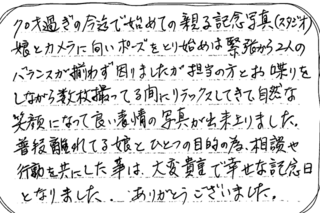 70才過ぎの今迄で始めての親子記念写真(スタジオ)
娘とカメラに向いポーズをとり始めは緊張から2人の
バランスが揃わず困りましたが担当の方とお喋りを
しながら数枚撮ってる間にリラックスしてきて自然な
笑顔になって良い表情の写真が出来上りました。
普段離れてる娘とひとつの目的の為、相談や
行動を共にした事は、大変貴重で幸せな記念日
となりました。ありがとうございました。